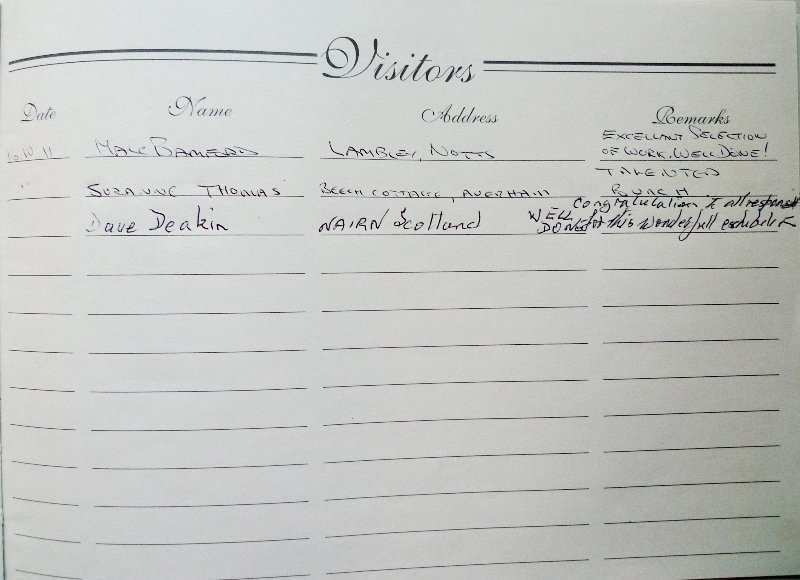 Visitors
Date Name Address Remarks
EXCELLANT SELECTION
10.10.11 LAMBLEY, NOTTS OF WORK. WELL DONE!
TALENTED
" SUZANNE THOMAS BEECH COTTAGE, AVERHAM BUNCH
Congratulation to all responsible
Dave Deakin NAIRN Scotland WELL DONE for this wonderfull exhibition